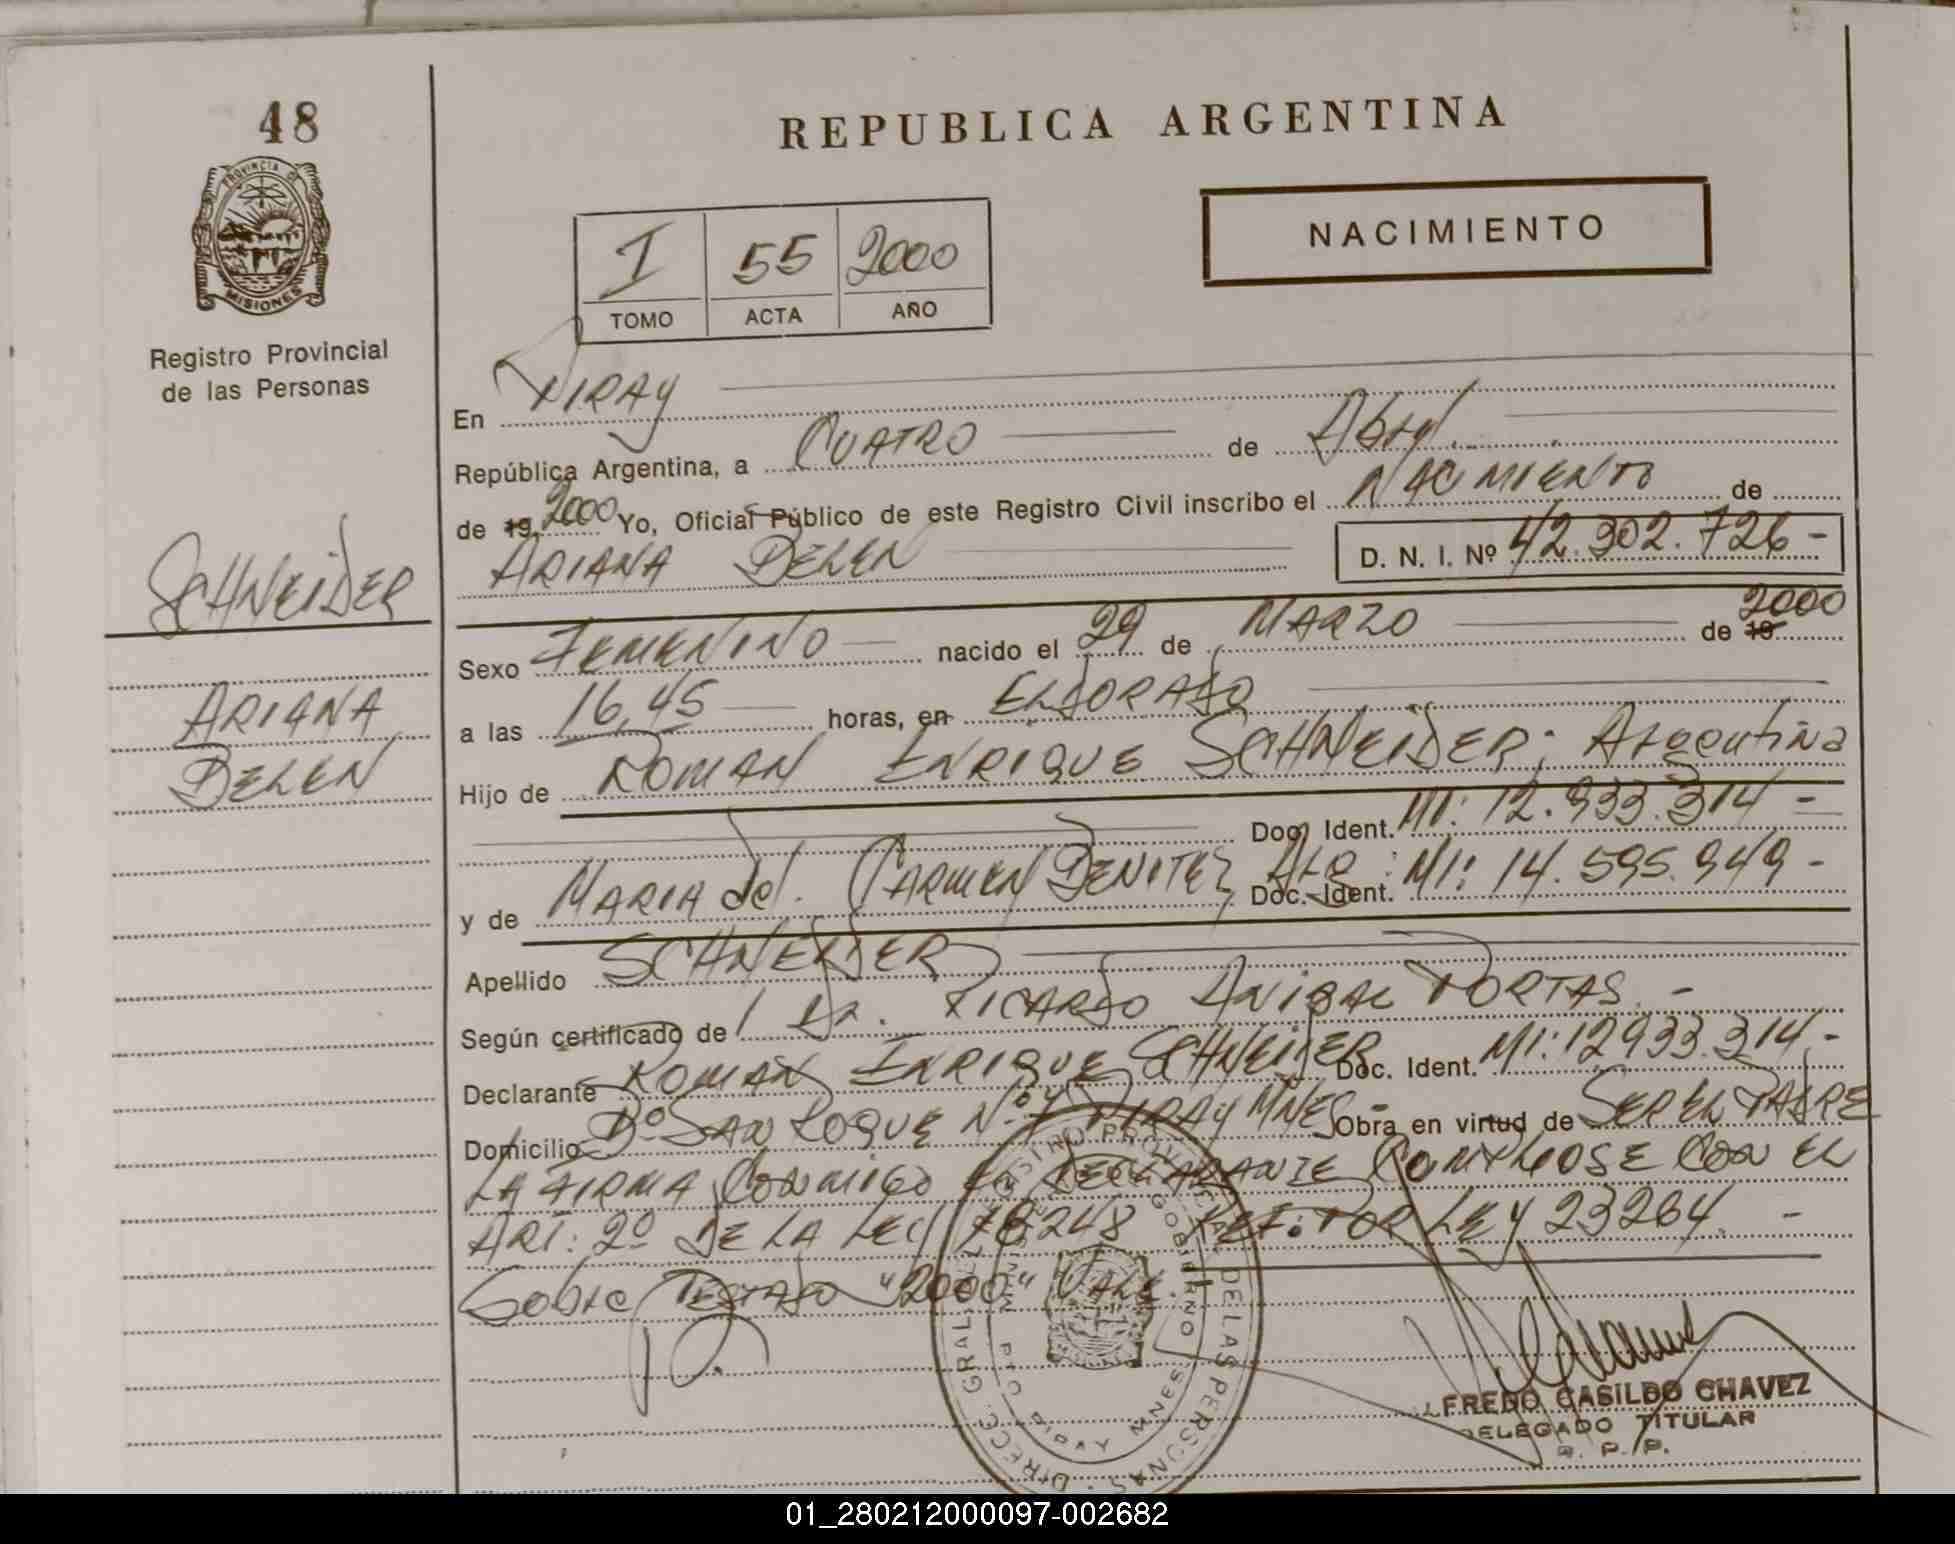 48
REPUBLICA ARGENTINA
PROVINCIA DE
MISIONES
Registro Provincial
de las Personas
I 55 2000
TOMO ACTA AÑO
NACIMIENTO
En PIRAY
República Argentina, a CUATRO de Abril
de 19 2000 Yo, Oficial Público de este Registro Civil inscribo el NACIMIENTO de
ARIANA BELEN D. N. I. Nº 42.302.726 -
SCHNEIDER
ARIANA
BELEN
Sexo FEMENINO nacido el 29 de MARZO de 19 2000
a las 16,45 horas, en ELDORADO
Hijo de ROMAN ENRIQUE SCHNEIDER; Argentina
Doc. Ident. MI: 12.933.314 -
y de MARIA del CARMEN BENITEZ Doc. Ident. MI: 14.595.949 -
Apellido SCHNEIDER
Según certificado de Dr. RICARDO ANIBAL PORTAS. -
Declarante ROMAN ENRIQUE SCHNEIDER Doc. Ident. MI: 12933.314 -
Domicilio Bº SAN ROQUE Nº PIRAY MNES Obra en virtud de SER EL PADRE
LA FIRMA CONMIGO EL DECLARANTE CUMPLIOSE CON EL
ART: 2º DE LA LEY 18248 REF: POR LEY 23264. -
Sobre TESTADO "2000" VALE.
DIRECC. GRAL. DEL REGISTRO PROVINCIAL DE LAS PERSONAS
GOBIERNO
PTO PIRAY MNES
LFREDO CASILDO CHAVEZ
DELEGADO TITULAR
R. P. P.
01_280212000097-002682